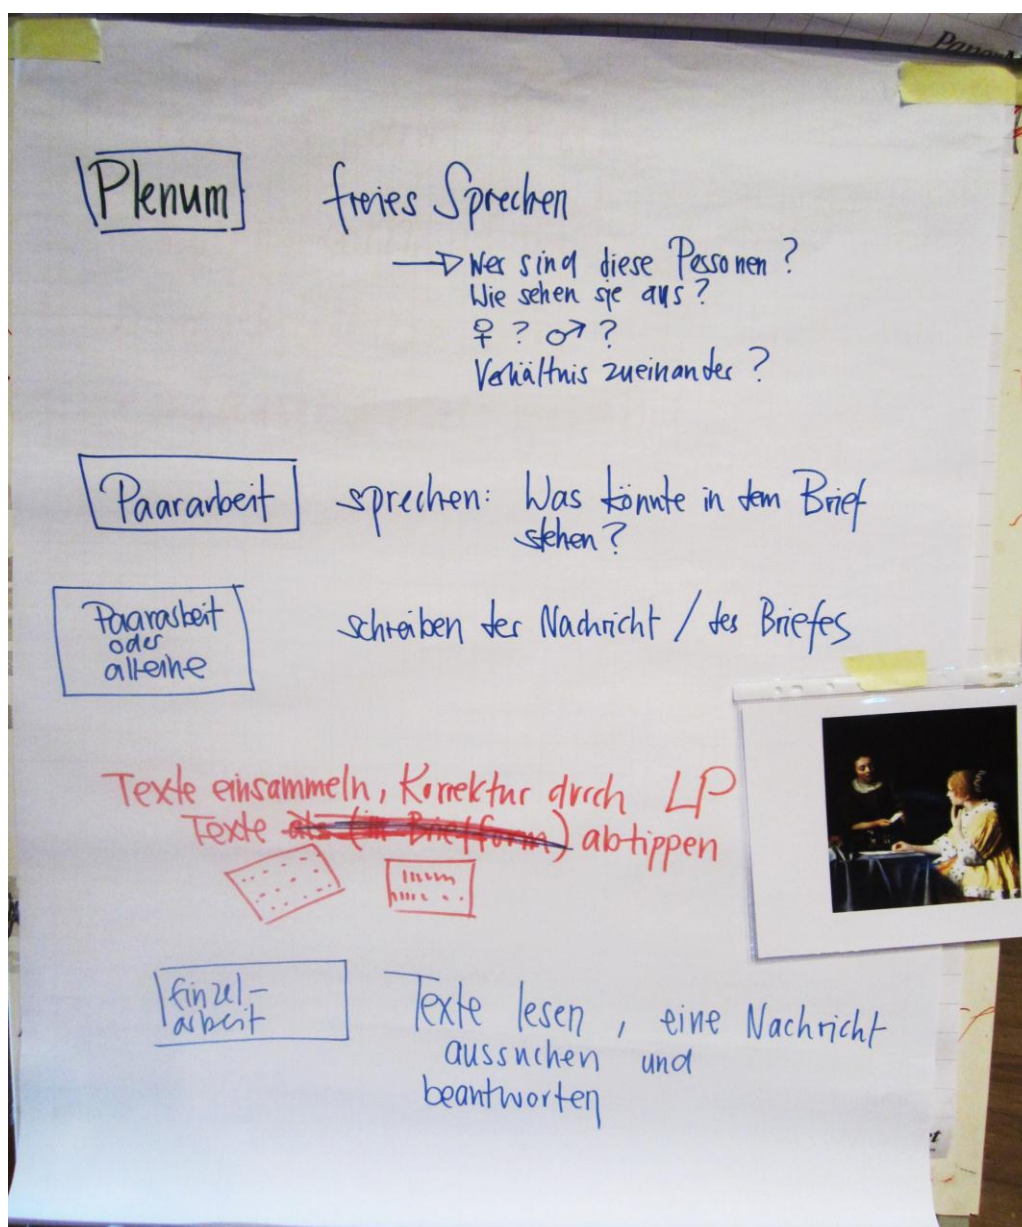 Plenum freies Sprechen
→ Wer sind diese Personen?
Wie sehen sie aus?
♀ ? ♂ ?
Verhältnis zueinander?
Paararbeit sprechen: Was könnte in dem Brief
stehen?
Paararbeit
oder
alleine
schreiben der Nachricht / des Briefes
Texte einsammeln, Korrektur durch LP
Texte als (in Briefform) abtippen
Einzel-
arbeit
Texte lesen, eine Nachricht
aussuchen und
beantworten